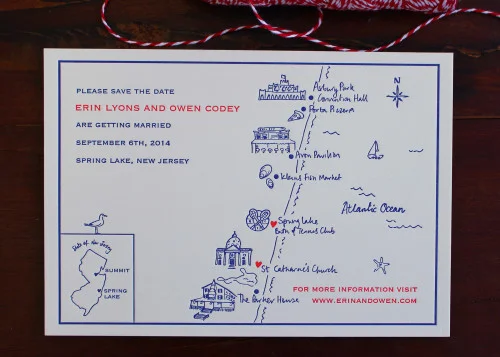 PLEASE SAVE THE DATE
ERIN LYONS AND OWEN CODEY
ARE GETTING MARRIED
SEPTEMBER 6TH, 2014
SPRING LAKE, NEW JERSEY
Asbury Park
Convention Hall
Porta Pizzeria
Avon Pavilion
Klein's Fish Market
Spring Lake
Bath & Tennis Club
St. Catharine's Church
The Parker House
N
Atlantic Ocean
State of New Jersey
SUMMIT
SPRING
LAKE
FOR MORE INFORMATION VISIT
WWW.ERINANDOWEN.COM